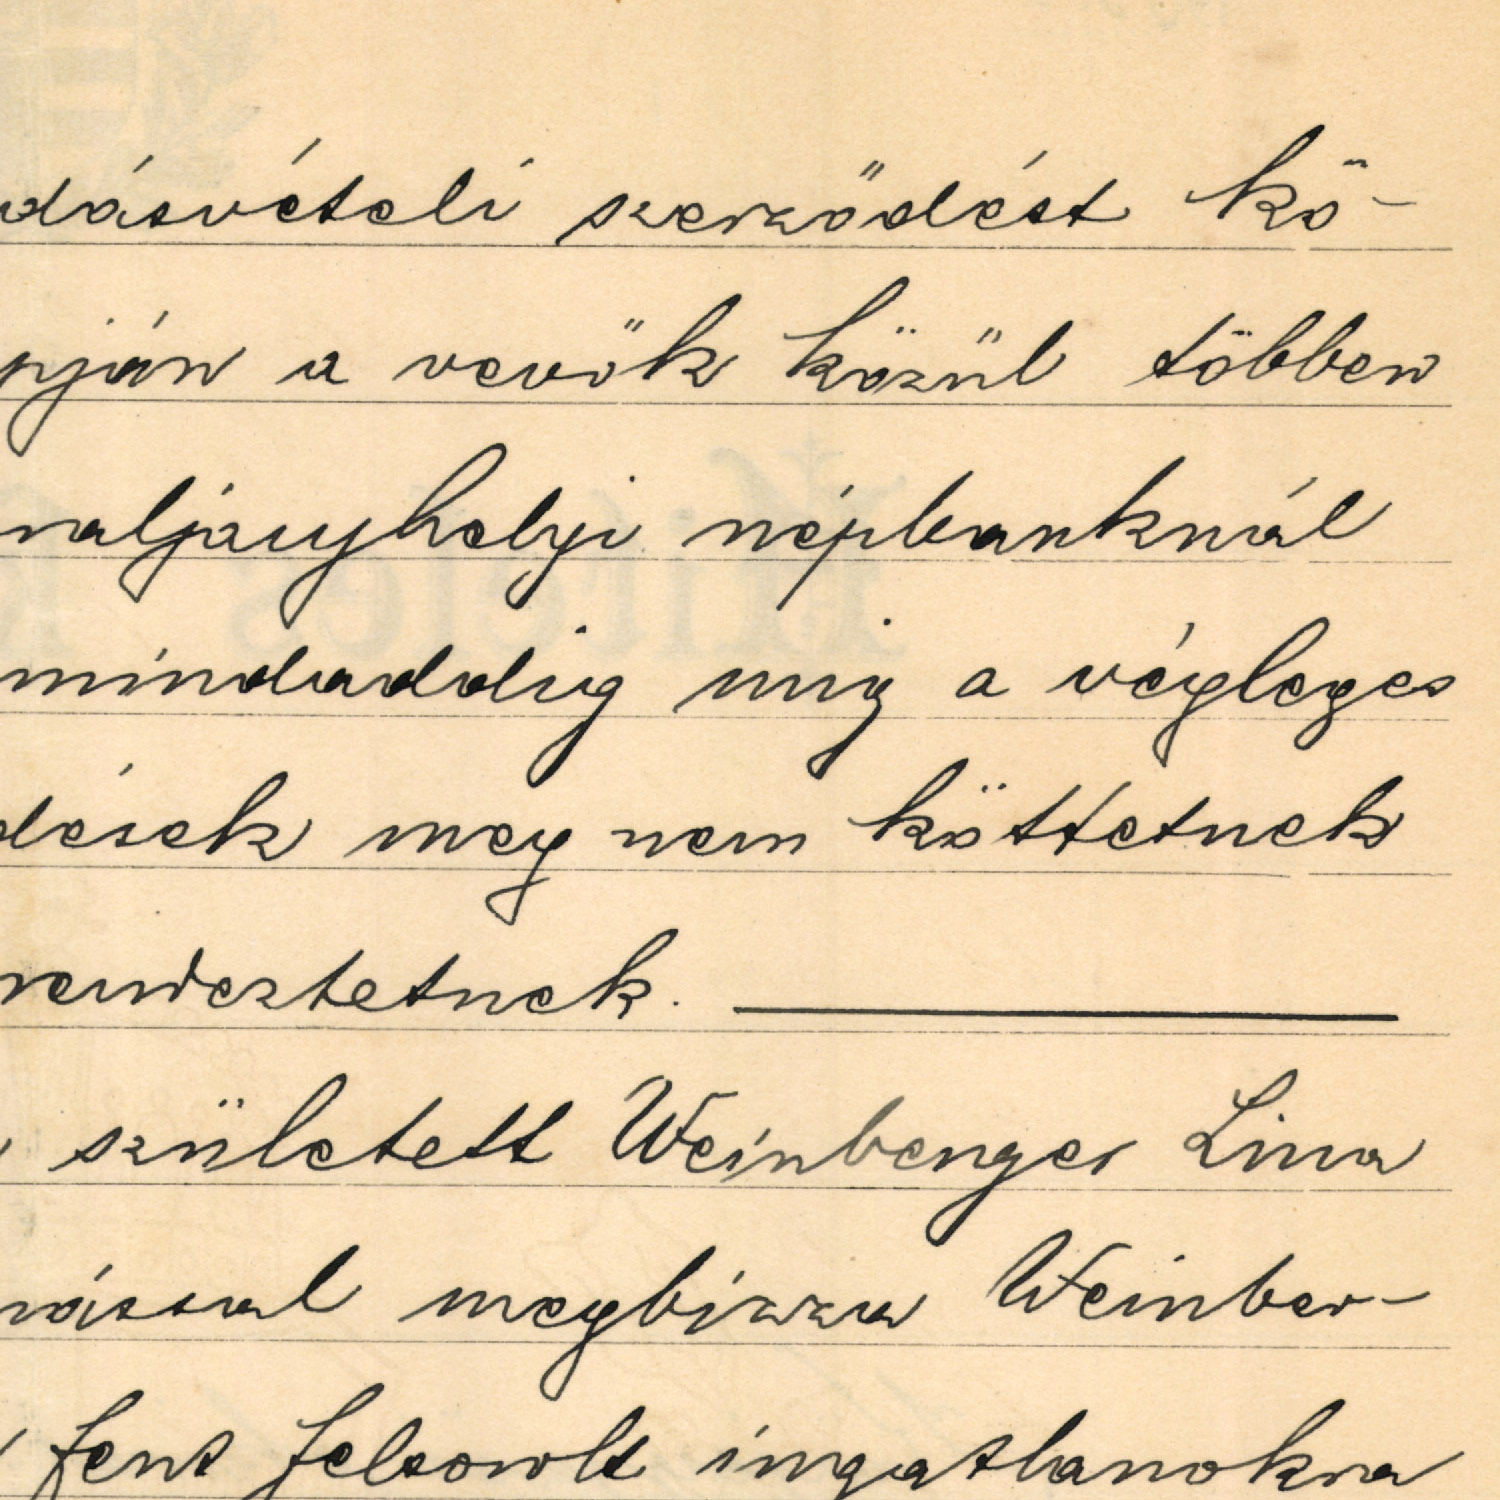 dásvételi szerződést kö-
pján a vevők közül többen
raljaujhelyi népbanknál
mindaddig mig a végleges
dések meg nem köttetnek
rendeztetnek.
született Weinberger Lina
rással megbizza Weinber-
fent felsorolt ingatlanokra